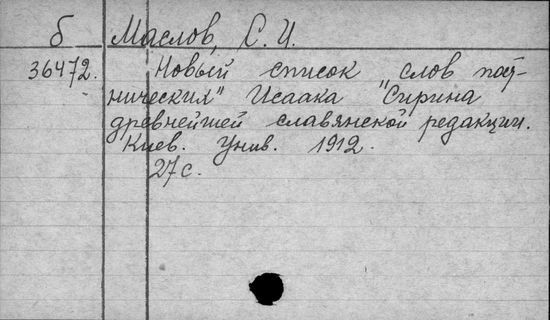 б Маслов, С. И.
36472. Новый список "слов пост-
нических" Исаака Сирина
древнейшей славянской редакции.
Киев. Унив. 1912.
27 с.